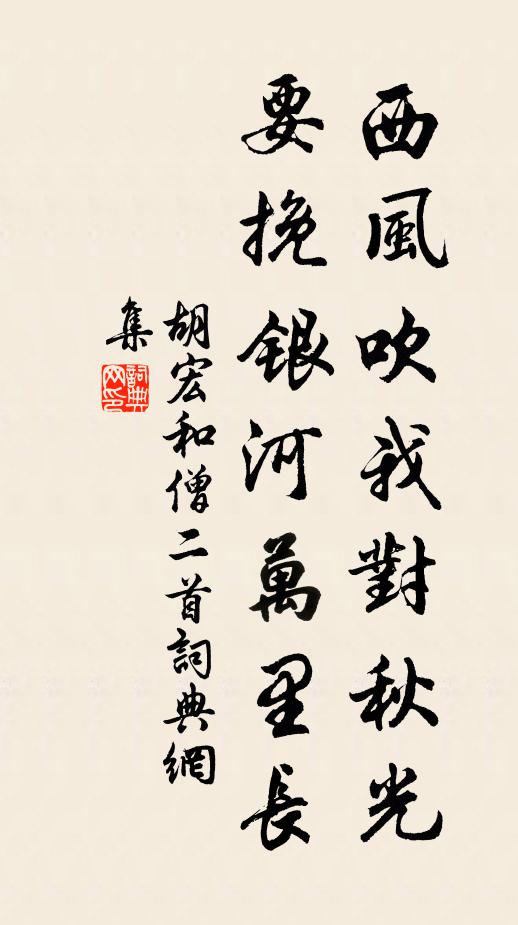 西風吹我對秋光
要挽銀河萬里長
胡宏和僧二首詞典網
集
詞典網印